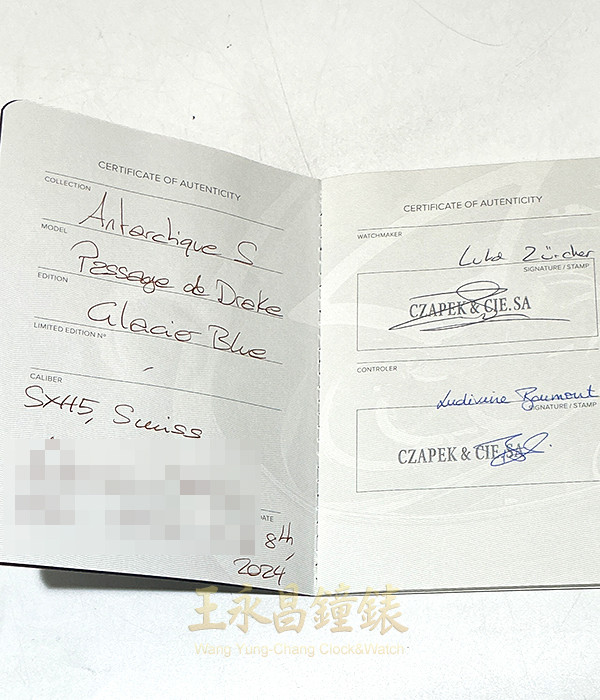 CERTIFICATE OF AUTHENTICITY
COLLECTION
Antarctique S
MODEL
Passage de Drake
EDITION
Glacier Blue
LIMITED EDITION N°
CALIBER
SXH5, Swiss
DATE
8th,
2024
CERTIFICATE OF AUTHENTICITY
WATCHMAKER
Zürcher
SIGNATURE / STAMP
CZAPEK & CIE.SA
CONTROLER
Ludivine Beaumont
SIGNATURE / STAMP
CZAPEK & CIE.SA
王永昌鐘錶
Wang-Yung-Chang Clock&Watch